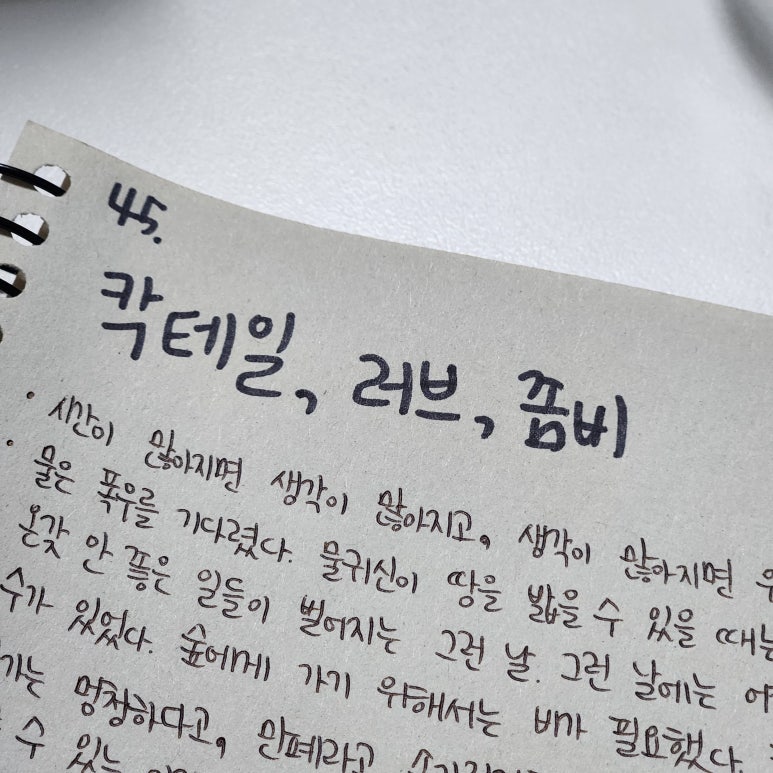 45.
칵테일, 러브, 좀비
· 시간이 많아지면 생각이 많아지고, 생각이 많아지면
· 물은 폭우를 기다렸다. 물귀신이 땅을 밟을 수 있을 때는
온갖 안 좋은 일들이 벌어지는 그런 날. 그런 날에는
수가 있었다. 숲에게 가기 위해서는 비가 필요했다.
멍청하다고, 민폐라고
수 있는